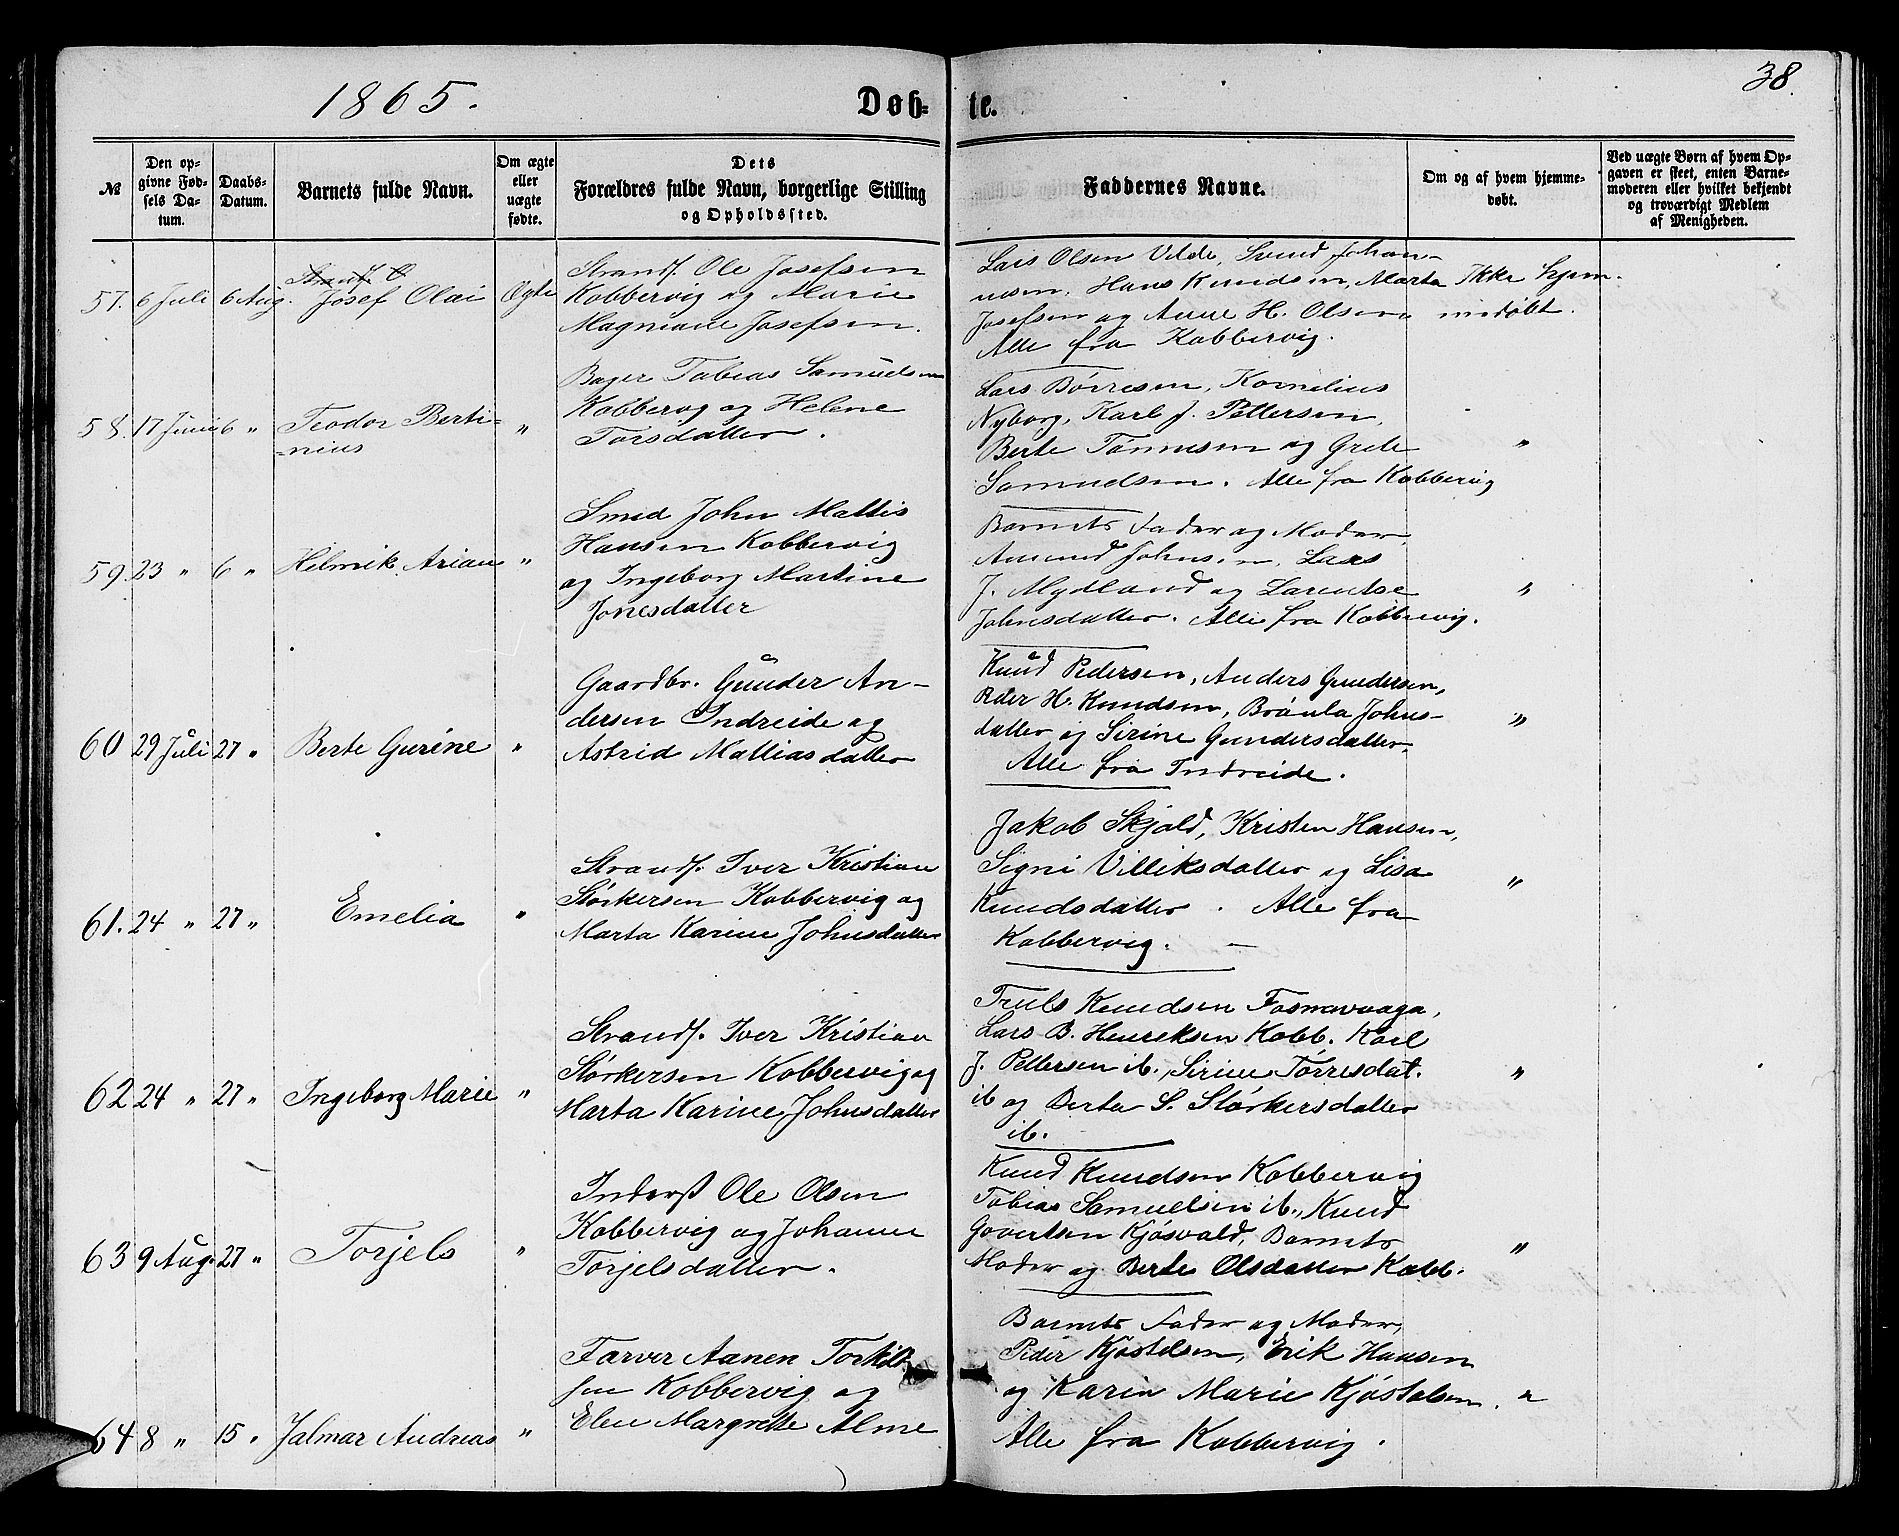 1865.
Døb-
te.
38.
№
Den op-
givne Fød-
sels Da-
tum.
Daabs-
Datum.
Barnets fulde Navn.
Om ægte
eller
uægte
fødte.
Dets
Forældres fulde Navn, borgerlige Stilling
og Opholdssted.
Faddernes Navne.
Om og af hvem hjemme-
døbt.
Ved uægte Børn af hvem Op-
gaven er skeet, enten Barne-
moderen eller hvilket bekjendt
og troværdigt Medlem
af Menigheden.
57. 6 Juli 6 Aug. Josef Olai Ægte
Strands. Ole Josefsen
Kobbervig og Marie
Magniane Josefsen.
Lars Olsen Vilde, Svend Johan-
nesen, Hans Knudsen, Marta
Josefsen og Anne H. Olsen
Alle fra Kobbervig.
Ikke hjem-
medøbt.
58. 17 Juni 6 " Teodor Berti-
-nius "
Bager Tobias Samuelsen
Kobbervg og Helene
Torsdatter.
Lars Börresen, Kornelius
Nyborg, Karl J. Pettersen,
Berte Tönnesen og Grete
Samuelsen. Alle fra Kobbervig
"
59. 23 " 6 " Helmik Arian "
Smed John Mattis
Hansen Kobbervig
og Ingeborg Martine
Jonesdatter
Barnets Fader og Moder,
Amund Johnsen, Lars
J. Mydland og Larentse
Johnsdatter. Alle fra Kobbervig.
"
60 29 Juli 27 " Berte Gurine "
Gaardbr. Gunder An-
dersen Indreide og
Astrid Mattiasdatter
Knud Pedersen, Anders Gundersen,
Peder H. Knudsen, Bråula Johns-
datter og Sirine Gundersdatter,
Alle fra Indreide.
"
61. 24 " 27 " Emelia "
Strands. Iver Kristian
Størkersen Kobbervig og
Marta Karine Johnsdatter
Jakob Skjold, Kristen Hansen,
Signi Villiksdatter og Lisa
Knudsdatter. Alle fra
Kobbervig. —
"
62 24 " 27 " Ingeborg Marie "
Strands. Iver Kristian
Størkersen Kobbervig og
Marta Karine Johnsdatter
Truls Knudsen Fosnavaaga,
Lars B. Henreksen Kobb. Karl
J. Pettersen ib., Sirine Tørresdat.
ib og Berta S. Størkersdatter
ib.
"
63 9 Aug. 27 " Torjels "
Inderst Ole Olsen
Kobbervig og Johanne
Torjelsdatter.
Knud Knudsen Kobbervig
Tobias Samuelsen ib., Knud
Govertsen Kjösvald, Barnets
Moder og Berte Olsdatter Kobb.
"
64 8 " 15 " Jalmar Andreas "
Farver Aanen Torkild
sen Kobbervig og
Elen Margrette Alme
Barnets Fader og Moder,
Peder Kjøstelsen, Erik Hansen
og Karin Marie Kjøstelsen. "
Alle fra Kobbervig.